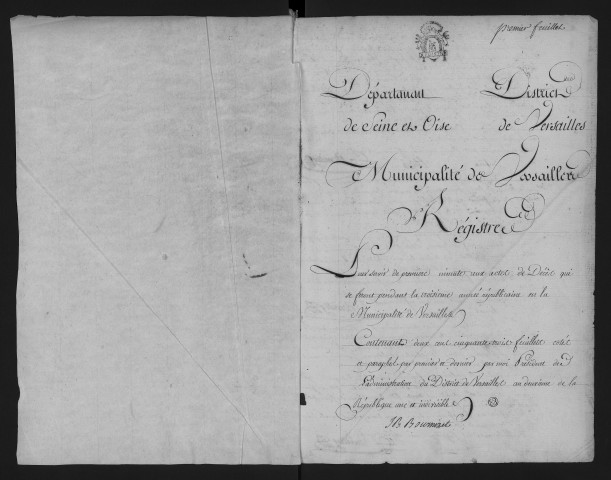 premier feuillet
Département District
de Seine et Oise de Versailles
Municipalité de Versailles
Régistre
Pour servir de premiere minute aux actes de Décès qui
se feront pendant la troisieme année républicaine en la
Municipalité de Versailles
Contenant deux cent cinquante trois feuillets cotés
et paraphés par premier et dernier par moi Président de
l'administration du District de Versailles an deuxieme de la
République une et indivisible